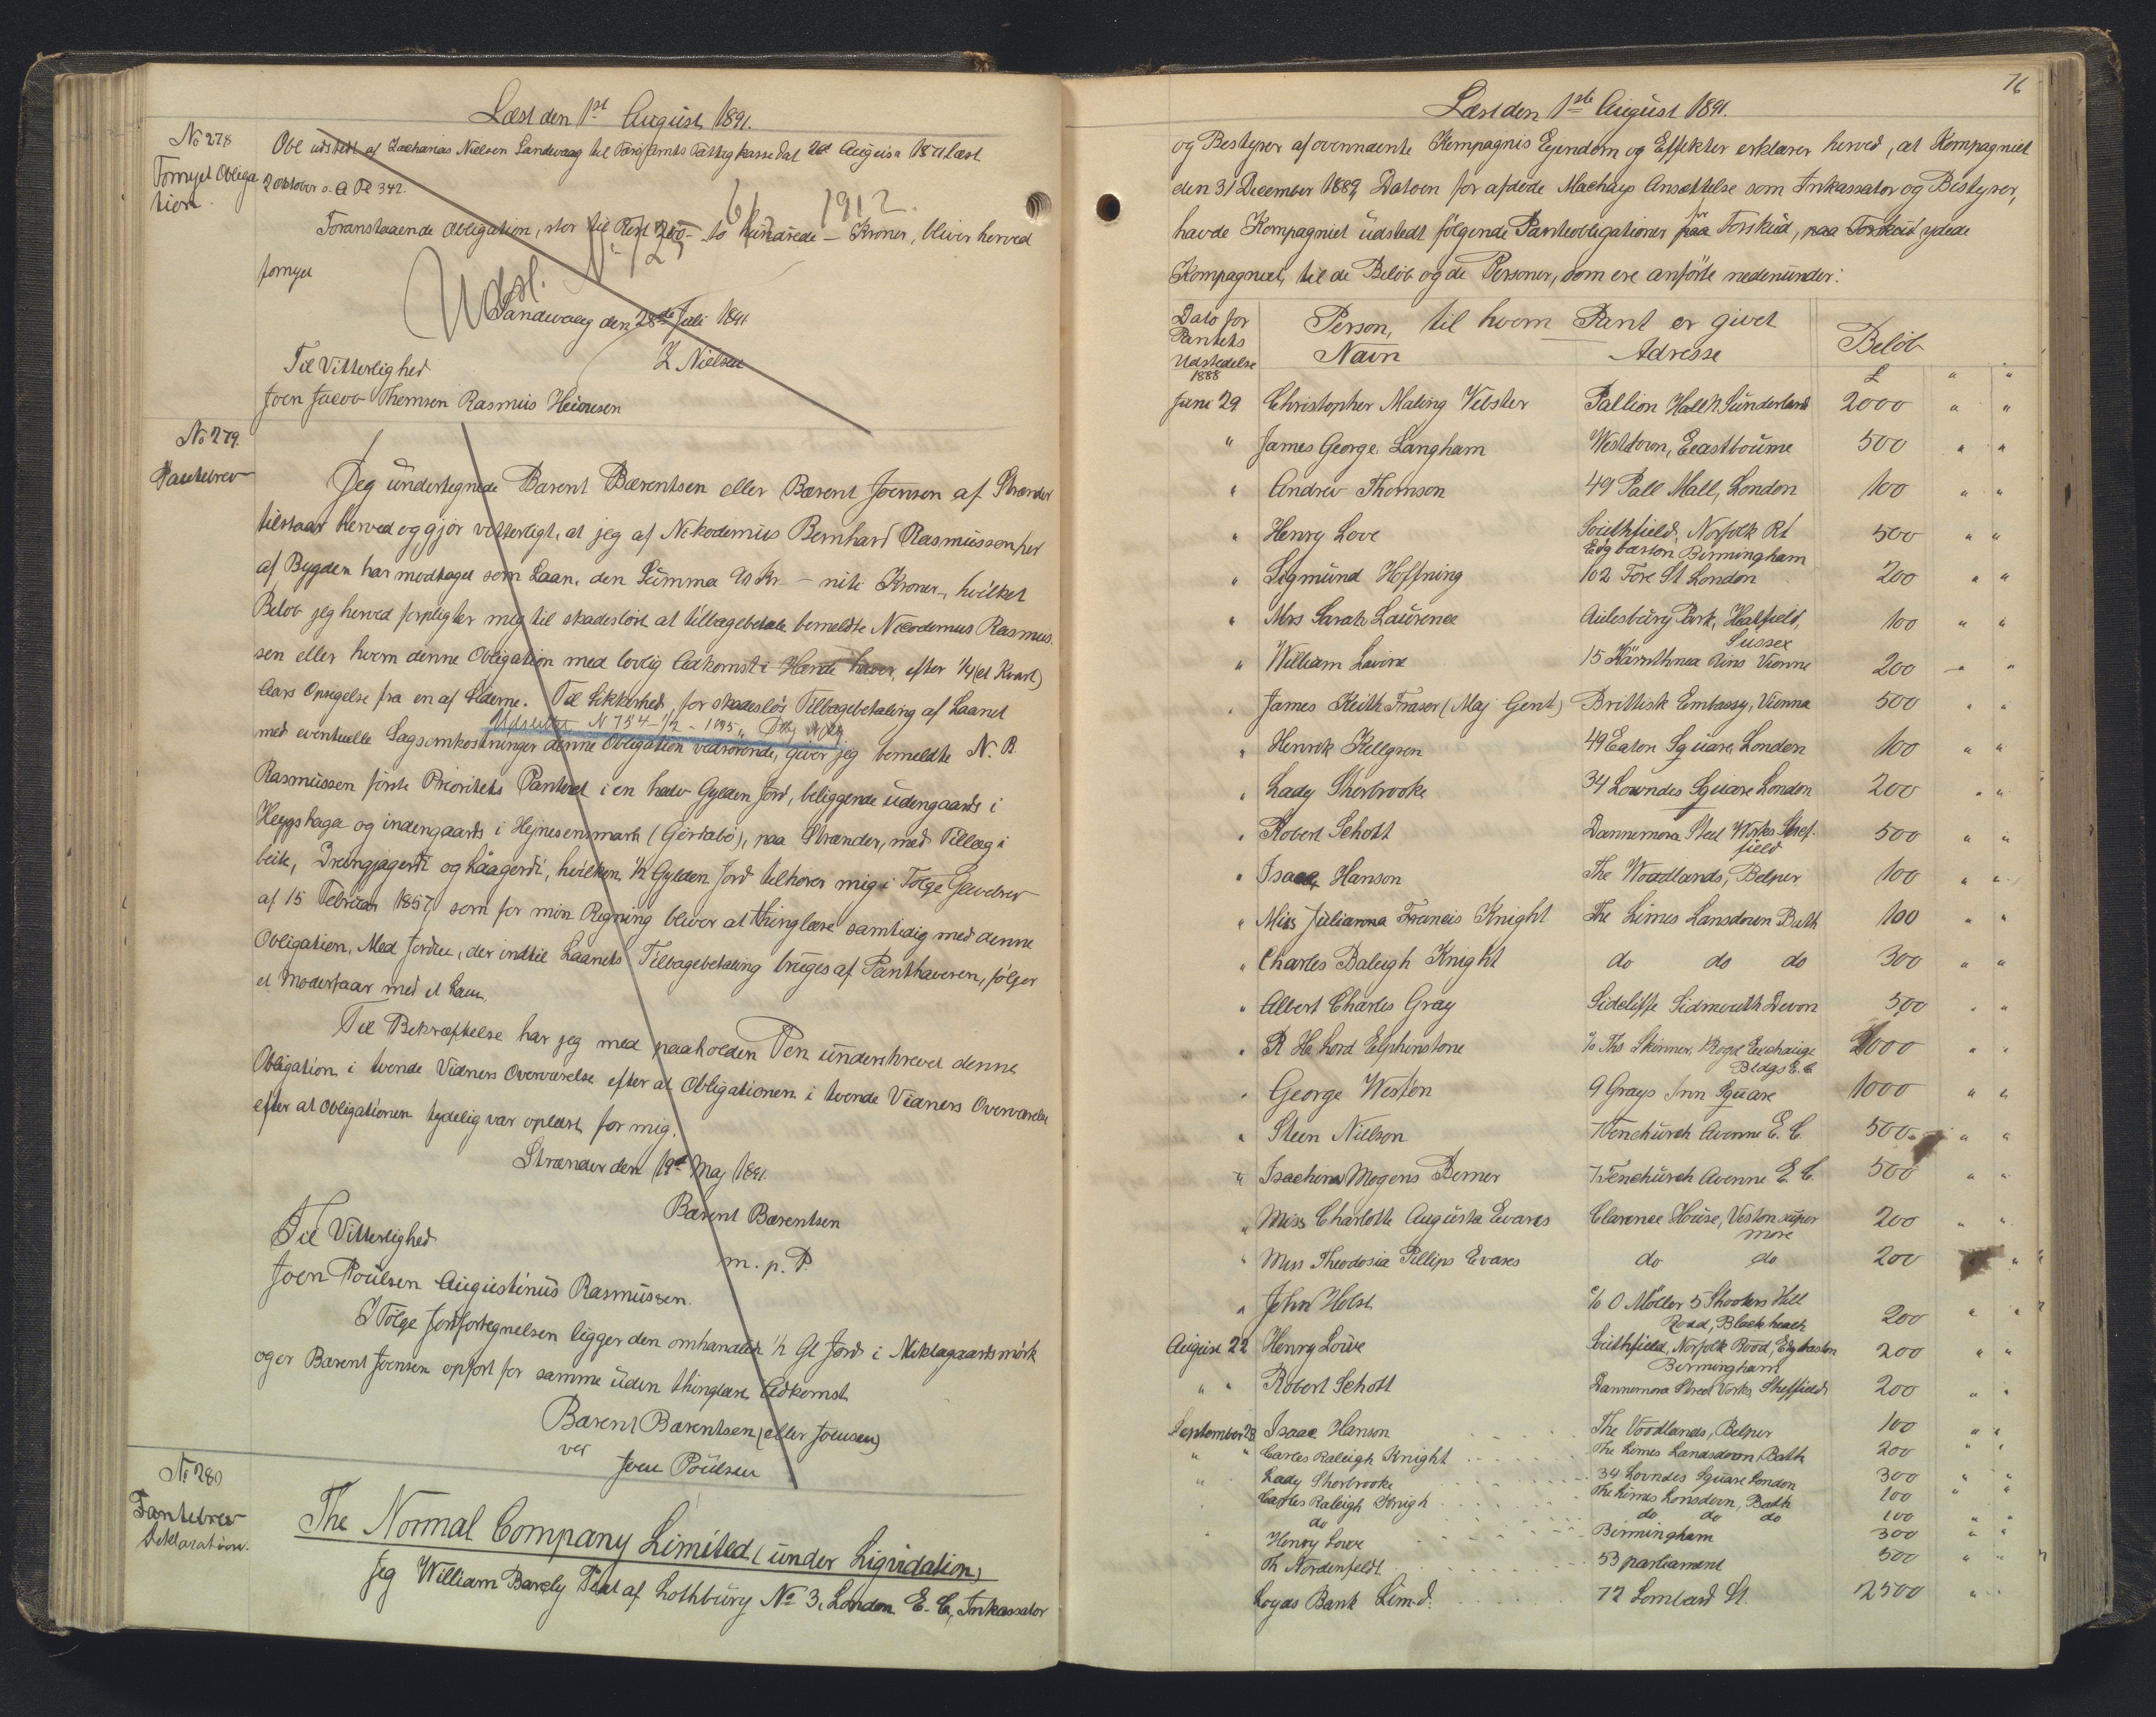 Læst den 1st August 1891.
No 278
Fornyet Obliga
tion.
Obl udstedt af Zacharias Nielsen Sandevaag til Færø Amts Fattigkasse dat August 1871 læst
2 Oktober s. A Fo 342.
Foranstaaende Obligation, stor til Rest 200 - to hundrede - Kroner, bliver herved
fornyet
6/2 1912.
N. 125
Udsl.
Sandevaag den 28de Juli 1891
Til Vitterlighed Z Nielsen
Joen Jacob Thomsen Rasmus Heinesen
No 279.
Pantebrev
Jeg undertegnede Barent Bærentsen eller Bærent Joensen af Strænder
tilstaar herved og gjør vitterligt, at jeg af Nikodemus Bernhard Rasmussen her
af Bygden har modtaget som Laan, den Summa 90 Kr. - niti Kroner -, hvilket
Beløb jeg herved forpligter mig til skadesløst at tilbagebetale bemeldte Nicodemus Rasmus
sen eller hvem denne Obligation med lovlig Adkomst i Hænde haver, efter 1/4 (et Kvart)
Aars Opsigelse fra en af Siderne. Til Sikkerhed, for skadesløs Tilbagebetaling af Laanet
Udslettet N 754 - 1/2 - 1895
med eventuelle Sagsomkostninger denne Obligation vedrørende, giver jeg bemeldte N. B.
Rasmussen første Prioritets Panteret i en halv Gylden Jord, beliggende udengaards i
Heygshaga og indengaards i Hejnesensmark (Gørtabø), paa Strænder, med Tillæg i
beik, Drengjagerdi og Láagerdi, hvilken 1/2 Gylden Jord tilhører mig i Følge Gavebrev
af 15 Februar 1857, som for min Regning bliver at thinglæse samtidig med denne
Obligation. Med Jorden, der indtil Laanets Tilbagebetaling bruges af Panthaveren, følger
et Moderfaar med et Lam.
Til Bekræftelse har jeg med paaholden Pen underskrevet denne
Obligation i tvende Vidners Overværelse efter at Obligationen i tvende Vidners Overværelse
efter at Obligationen tydelig var oplæst for mig.
Strænder den 19de Maj 1891.
Bærent Bærentsen
Til Vitterlighed m. p. P.
Joen Poulsen Augustinus Rasmussen.
I Følge Jordfortegnelsen ligger den omhandlede 1/2 Gl Jord i Niklagaardsmørk
og er Bærent Joensen opført for samme uden thinglæst Adkomst
Bærent Bærentsen (eller Joensen)
ver Joen Poulsen
No 280
Pantebrev
Deklaration.
The Normal Company Limited, (under Liqvidation)
Jeg William Barcly Peat af Lothbury No 3, London E. C, Inkassator
76
Læst den 1ste August 1891.
og Bestyrer af ovennævnte Kompagnis Ejendom og Effekter erklærer herved, at Kompagniet
den 31 December 1889, Datoen for afdøde Machays Ansættelse som Inkassator og Bestyrer,
havde Kompagniet udstedt følgende Panteobligationer for paa Forskud, paa Forskud ydede
Kompagniet, til de Beløb og de Personer, som ere anførte nedenunder:
Dato for Pantets Udstedelse Person, til hvem Pant er givet Beløb
Navn Adresse
1888 £ " "
June 29 Christopher Maling Vebster Pallion Hall N Sunderland 2000 " "
" James George Langham Westdown, Eeastbourne 500 " "
" Andrew Thomson 49 Pall Mall, London 100 " "
" Henry Love Southfield, Norfolk Rd 500 " "
Edgbaston Birmingham
" Sigmund Hoffning 102 Fore St London 200 " "
" Mrs Sarah Laurence Aulesbury Park, Hatfield, 100 " "
Sussex
" William Lavine 15 Kärnthner Ring Vienne 200 " "
" James Keith Fraser (Maj Gent) Brittisk Embassy, Vienna 500 " "
" Henrik Kellgren 49 Eaton Square London 100 " "
" Lady Sherbrooke 34 Lowndes Square London 200 " "
" Robert Schott Dannemora Steel Works Shef- 500 " "
field
" Isaac Hanson The Woodlands, Belper 100 " "
" Miss Julianna Francis Knight The Limes Lansdown Bath 100 " "
" Charles Raleigh Knight do do do 300 " "
" Albert Charles Gray Sidcliffe Sidmouth Devon 500 " "
" R He Lord Elphinstone c/o Ths Skinner, Royal Exchange 2000 " "
Bldgs E. C.
" George Weston 9 Grays Inn Square 1000 " "
" Steen Nielson 7 Fenchurch Avenue E. C. 500 " "
" Isachsen Mogens Berner 7 Fenchurch Avenue E. C. 500 " "
" Miss Charlotte Augusta Evares Clarence House, Veston super 200 " "
more
" Miss Theodosia Pillips Evares do do 200 " "
" John Holst c/o O Møller 5 Shooters Hill 200 " "
Road, Blackheath
August 22 Henry Lowe Southfield, Norfolk Road, Edgbaston 200 " "
Birmingham
" " Robert Schott Dannemora Steel Vorks Sheffield 200 " "
September 28 Isaac Hanson The Voodlands, Belper 100 " "
" " Carles Raleigh Knight The Limes Landsdown Bath 200 " "
" Lady Sherbrooke 34 Lovndes Square London 300 " "
Carles Raleigh Knigh The Limes Lonsdown, Bath 100 " "
do do do do 100 " "
" Henry Lowe Birmingham 300 " "
Th Nordenfeldt 53 parliament 500 " "
Loyds Bank Lim.d. 72 Lombard St. 2500 "